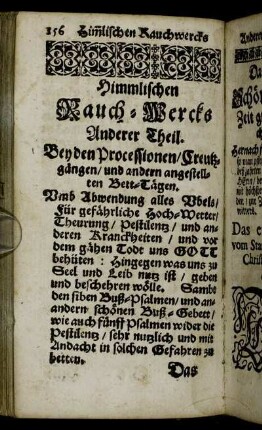 156 Him̃lischen Rauchwercks
Himmlischen
Rauch-Wercks
Anderer Theil.
Bey den Processionen / Creutz-
gängen / und andern angestell-
ten Bett-Tägen.
Umb Abwendung alles Vbels /
Für gefährliche Hoch-Wetter /
Theurung / Pestilentz / und an-
deren Kranckheiten / und vor
dem gähen Tode uns GOTT
behüten : Hingegen was uns zu
Seel und Leib nutz ist / geben
und beschehren wölle. Sambt
den siben Buß-Psalmen / und an-
andern schönen Buß-Gebett /
wie auch fünff Psalmen wider die
Pestilentz / sehr nutzlich und mit
Andacht in solchen Gefahren zu
betten.
Das
Andere
Da
Schön
Zeit g
Hernach f
Das e
vom Sta
Christ